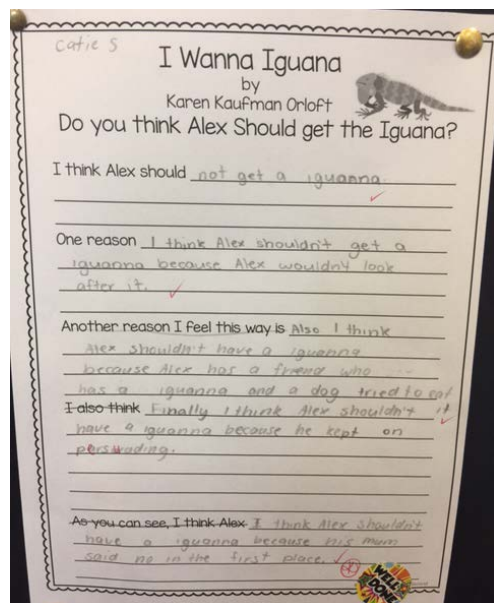 Catie S
I Wanna Iguana
by
Karen Kaufman Orloff
Do you think Alex Should get the Iguana?
I think Alex should not get a iguanna.
One reason I think Alex shouldn't get a
iguanna because Alex wouldn't look
after it.
Another reason I feel this way is Also I think
Alex shouldn't have a iguanna
because Alex has a friend who
has a iguanna and a dog tried to eat
it
I also think Finally I think Alex shouldn't
have a iguanna because he kept on
perswading.
As you can see, I think Alex I think Alex shouldn't
have a iguanna because his mum
said no in the first place.
WELL
DONE